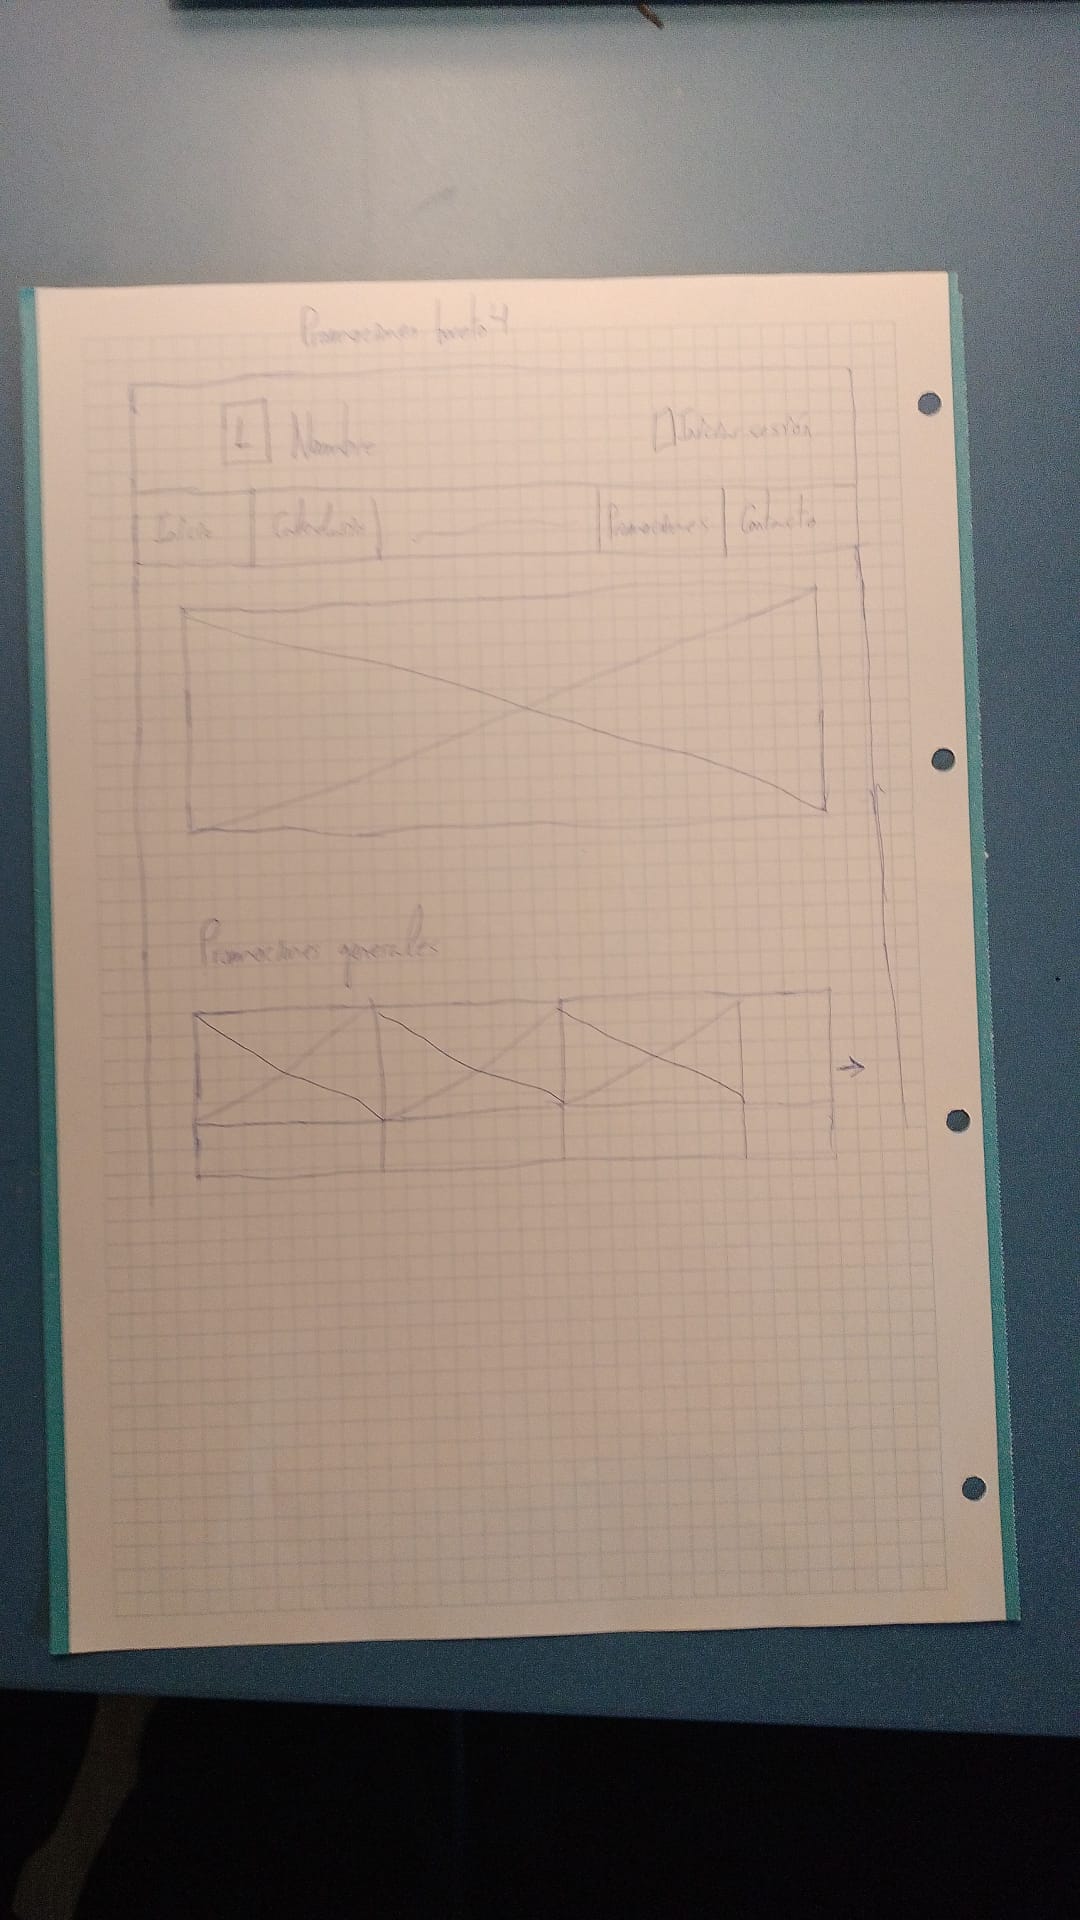 Promociones boceto 4
L Nombre Iniciar sesión
Inicio Promociones Contacto
Promociones generales